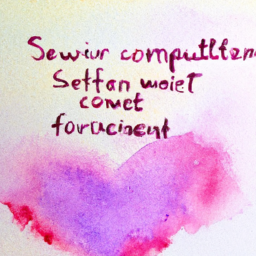 Sewiur computlten
Setfan woiet
comet
foracisent